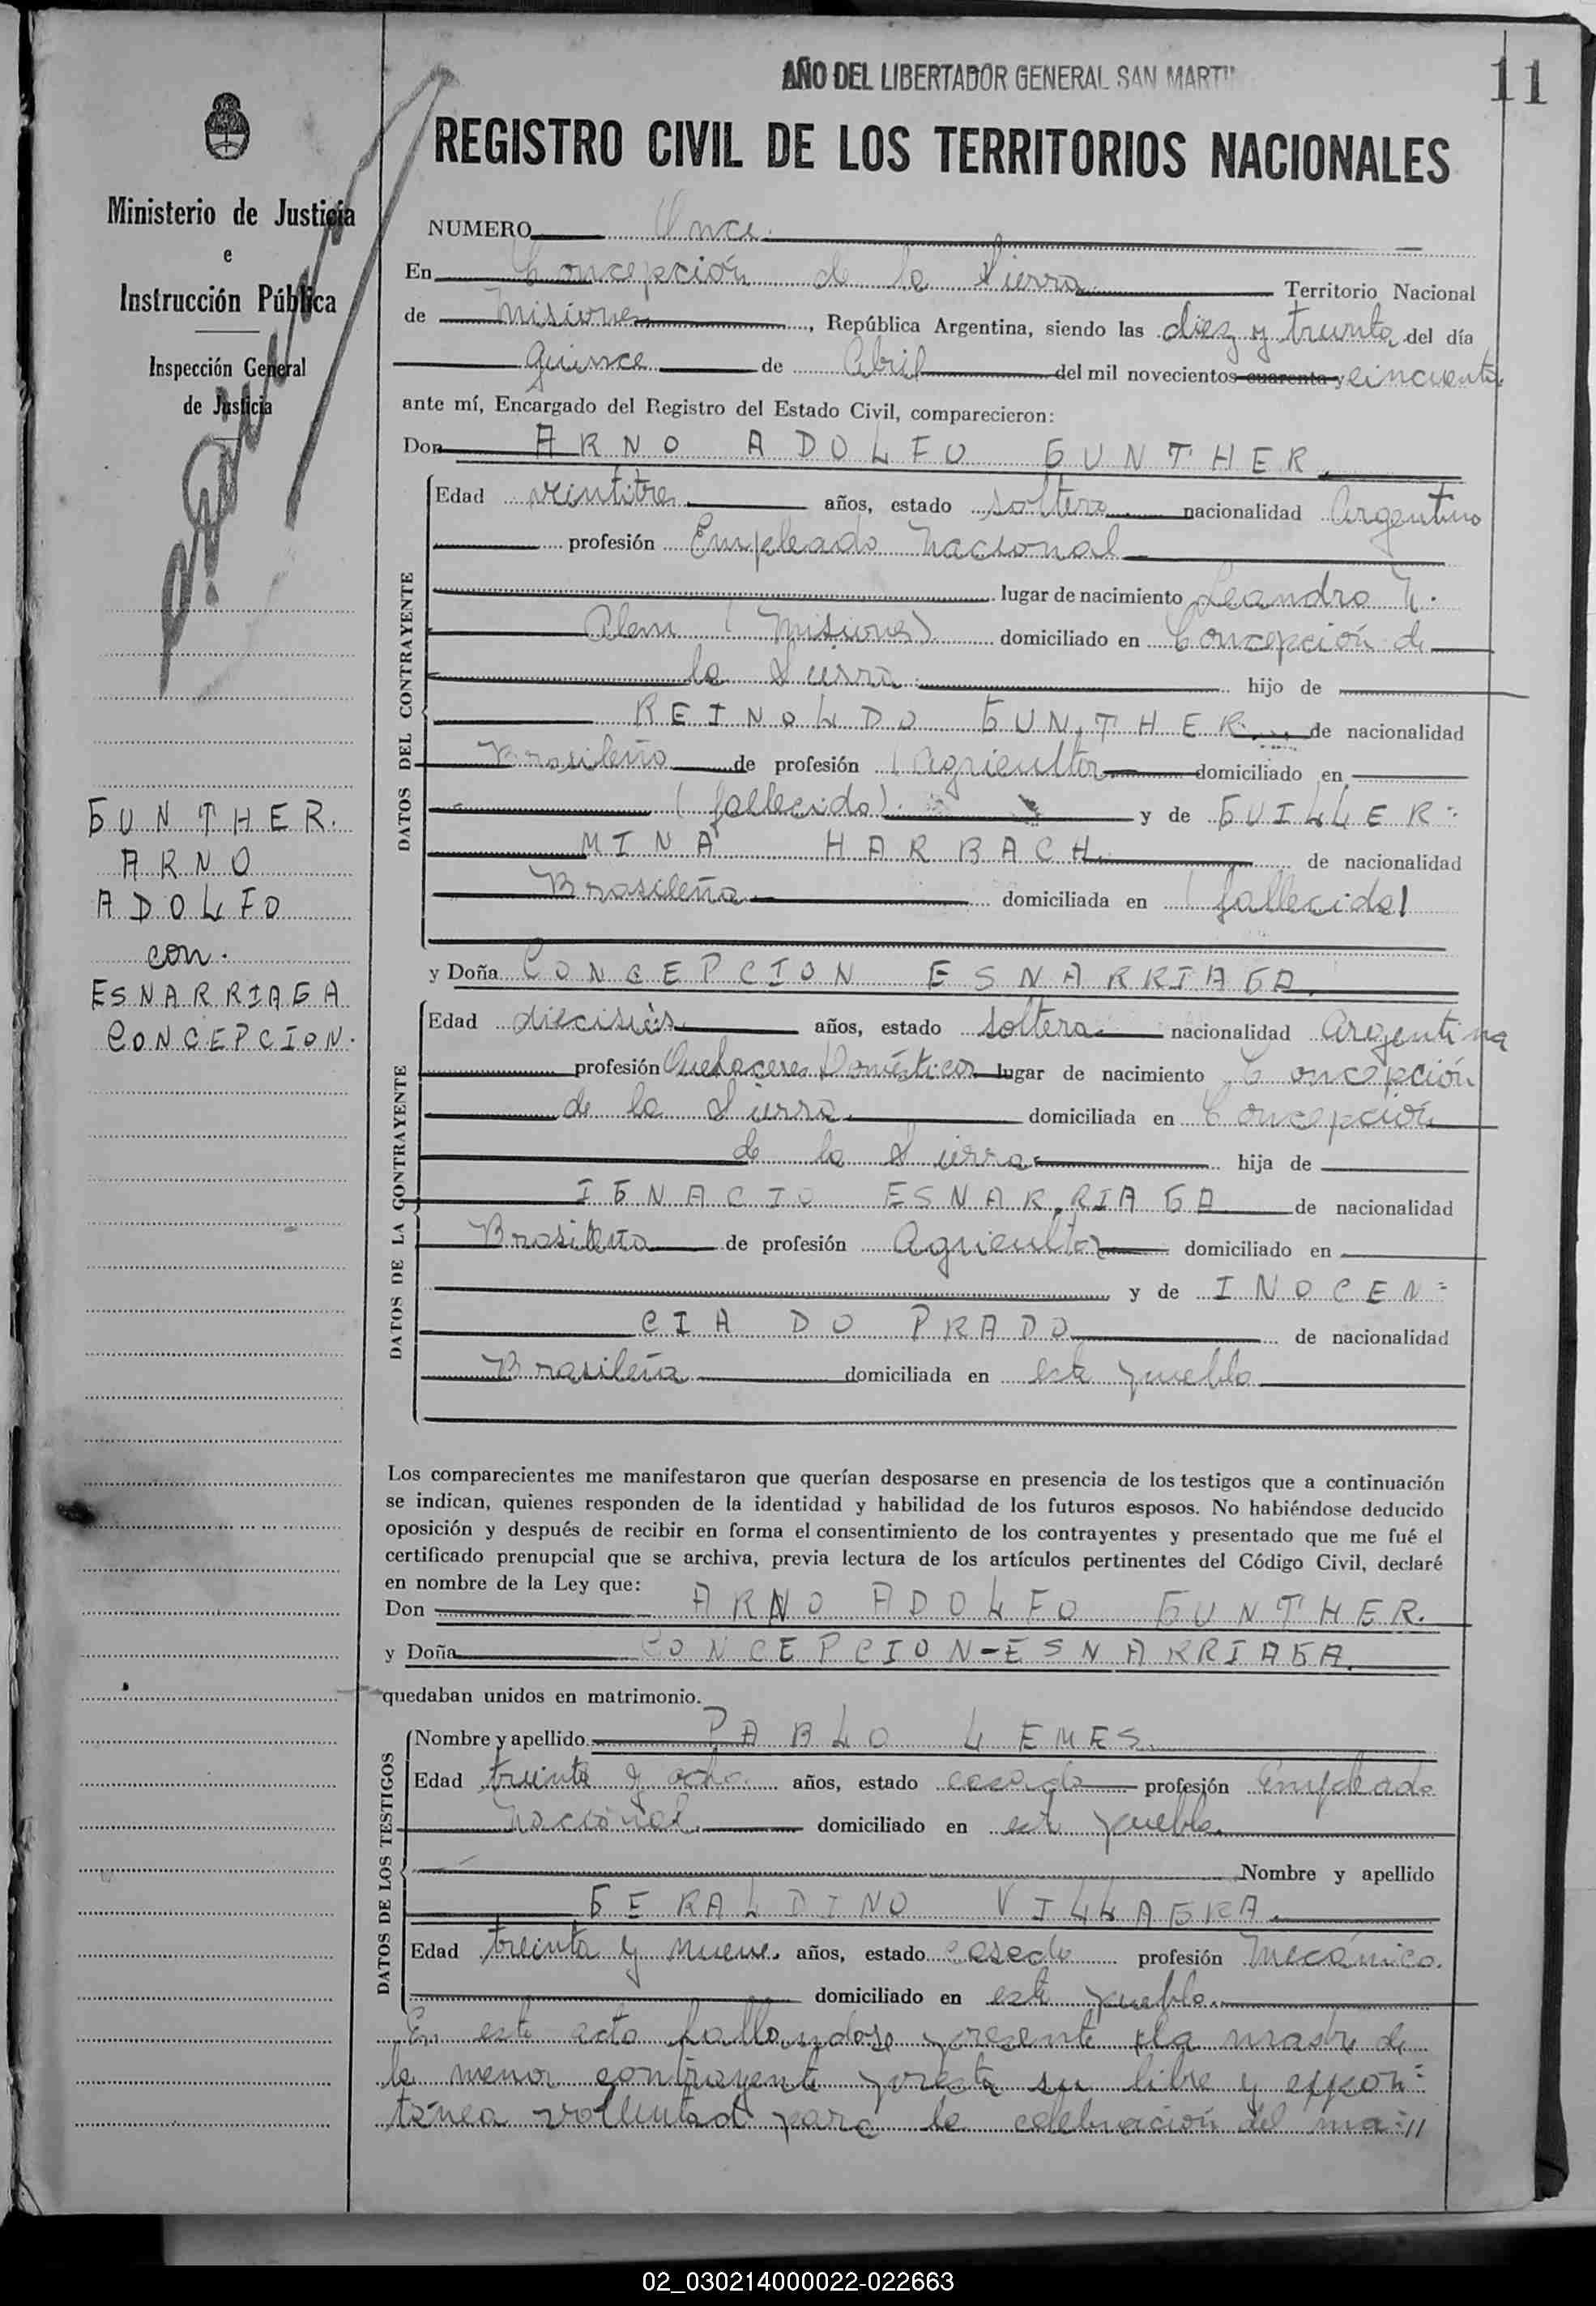 AÑO DEL LIBERTADOR GENERAL SAN MARTIN
11
REGISTRO CIVIL DE LOS TERRITORIOS NACIONALES
Ministerio de Justicia
e
Instrucción Pública
Inspección General
de Justicia
GUNTHER.
ARNO
ADOLFO
con.
ESNARRIAGA
CONCEPCION.
NUMERO Once.
En Concepción de la Sierra Territorio Nacional
de Misiones, República Argentina, siendo las diez y treinta del día
quince de Abril del mil novecientos cuarenta y cincuenta
ante mí, Encargado del Registro del Estado Civil, comparecieron:
Don ARNO ADOLFO GUNTHER.
DATOS DEL CONTRAYENTE
Edad veintitres años, estado soltero nacionalidad Argentino
profesión Empleado Nacional
lugar de nacimiento Leandro N.
Alem (Misiones) domiciliado en Concepción de
la Sierra hijo de
REINOLDO GUNTHER de nacionalidad
Brasileño de profesión (Agricultor domiciliado en
(fallecido). y de GUILLER=
MINA HARBACH. de nacionalidad
Brasileña domiciliada en (fallecida)
y Doña CONCEPCION ESNARRIAGA.
DATOS DE LA CONTRAYENTE
Edad dieciséis años, estado soltera nacionalidad Argentina
profesión Quehaceres Domésticos lugar de nacimiento Concepción
de la Sierra. domiciliada en Concepción
de la Sierra hija de
IGNACIO ESNARRIAGA de nacionalidad
Brasileño de profesión Agricultor domiciliado en
y de INOCEN=
CIA DO PRADO de nacionalidad
Brasileña domiciliada en este pueblo
Los comparecientes me manifestaron que querían desposarse en presencia de los testigos que a continuación
se indican, quienes responden de la identidad y habilidad de los futuros esposos. No habiéndose deducido
oposición y después de recibir en forma el consentimiento de los contrayentes y presentado que me fué el
certificado prenupcial que se archiva, previa lectura de los artículos pertinentes del Código Civil, declaré
en nombre de la Ley que:
Don ARNO ADOLFO GUNTHER.
y Doña CONCEPCION-ESNARRIAGA.
quedaban unidos en matrimonio.
DATOS DE LOS TESTIGOS
Nombre y apellido PABLO LEMES.
Edad treinta y ocho años, estado casado profesión Empleado
Nacional. domiciliado en este pueblo.
Nombre y apellido
GERALDINO VILLAGRA.
Edad treinta y nueve. años, estado casado profesión Mecánico.
domiciliado en este pueblo.
En este acto hallandose presente la madre de
la menor contrayente presta su libre y espon=
tánea voluntad para la celebración del ma=//
02_030214000022-022663